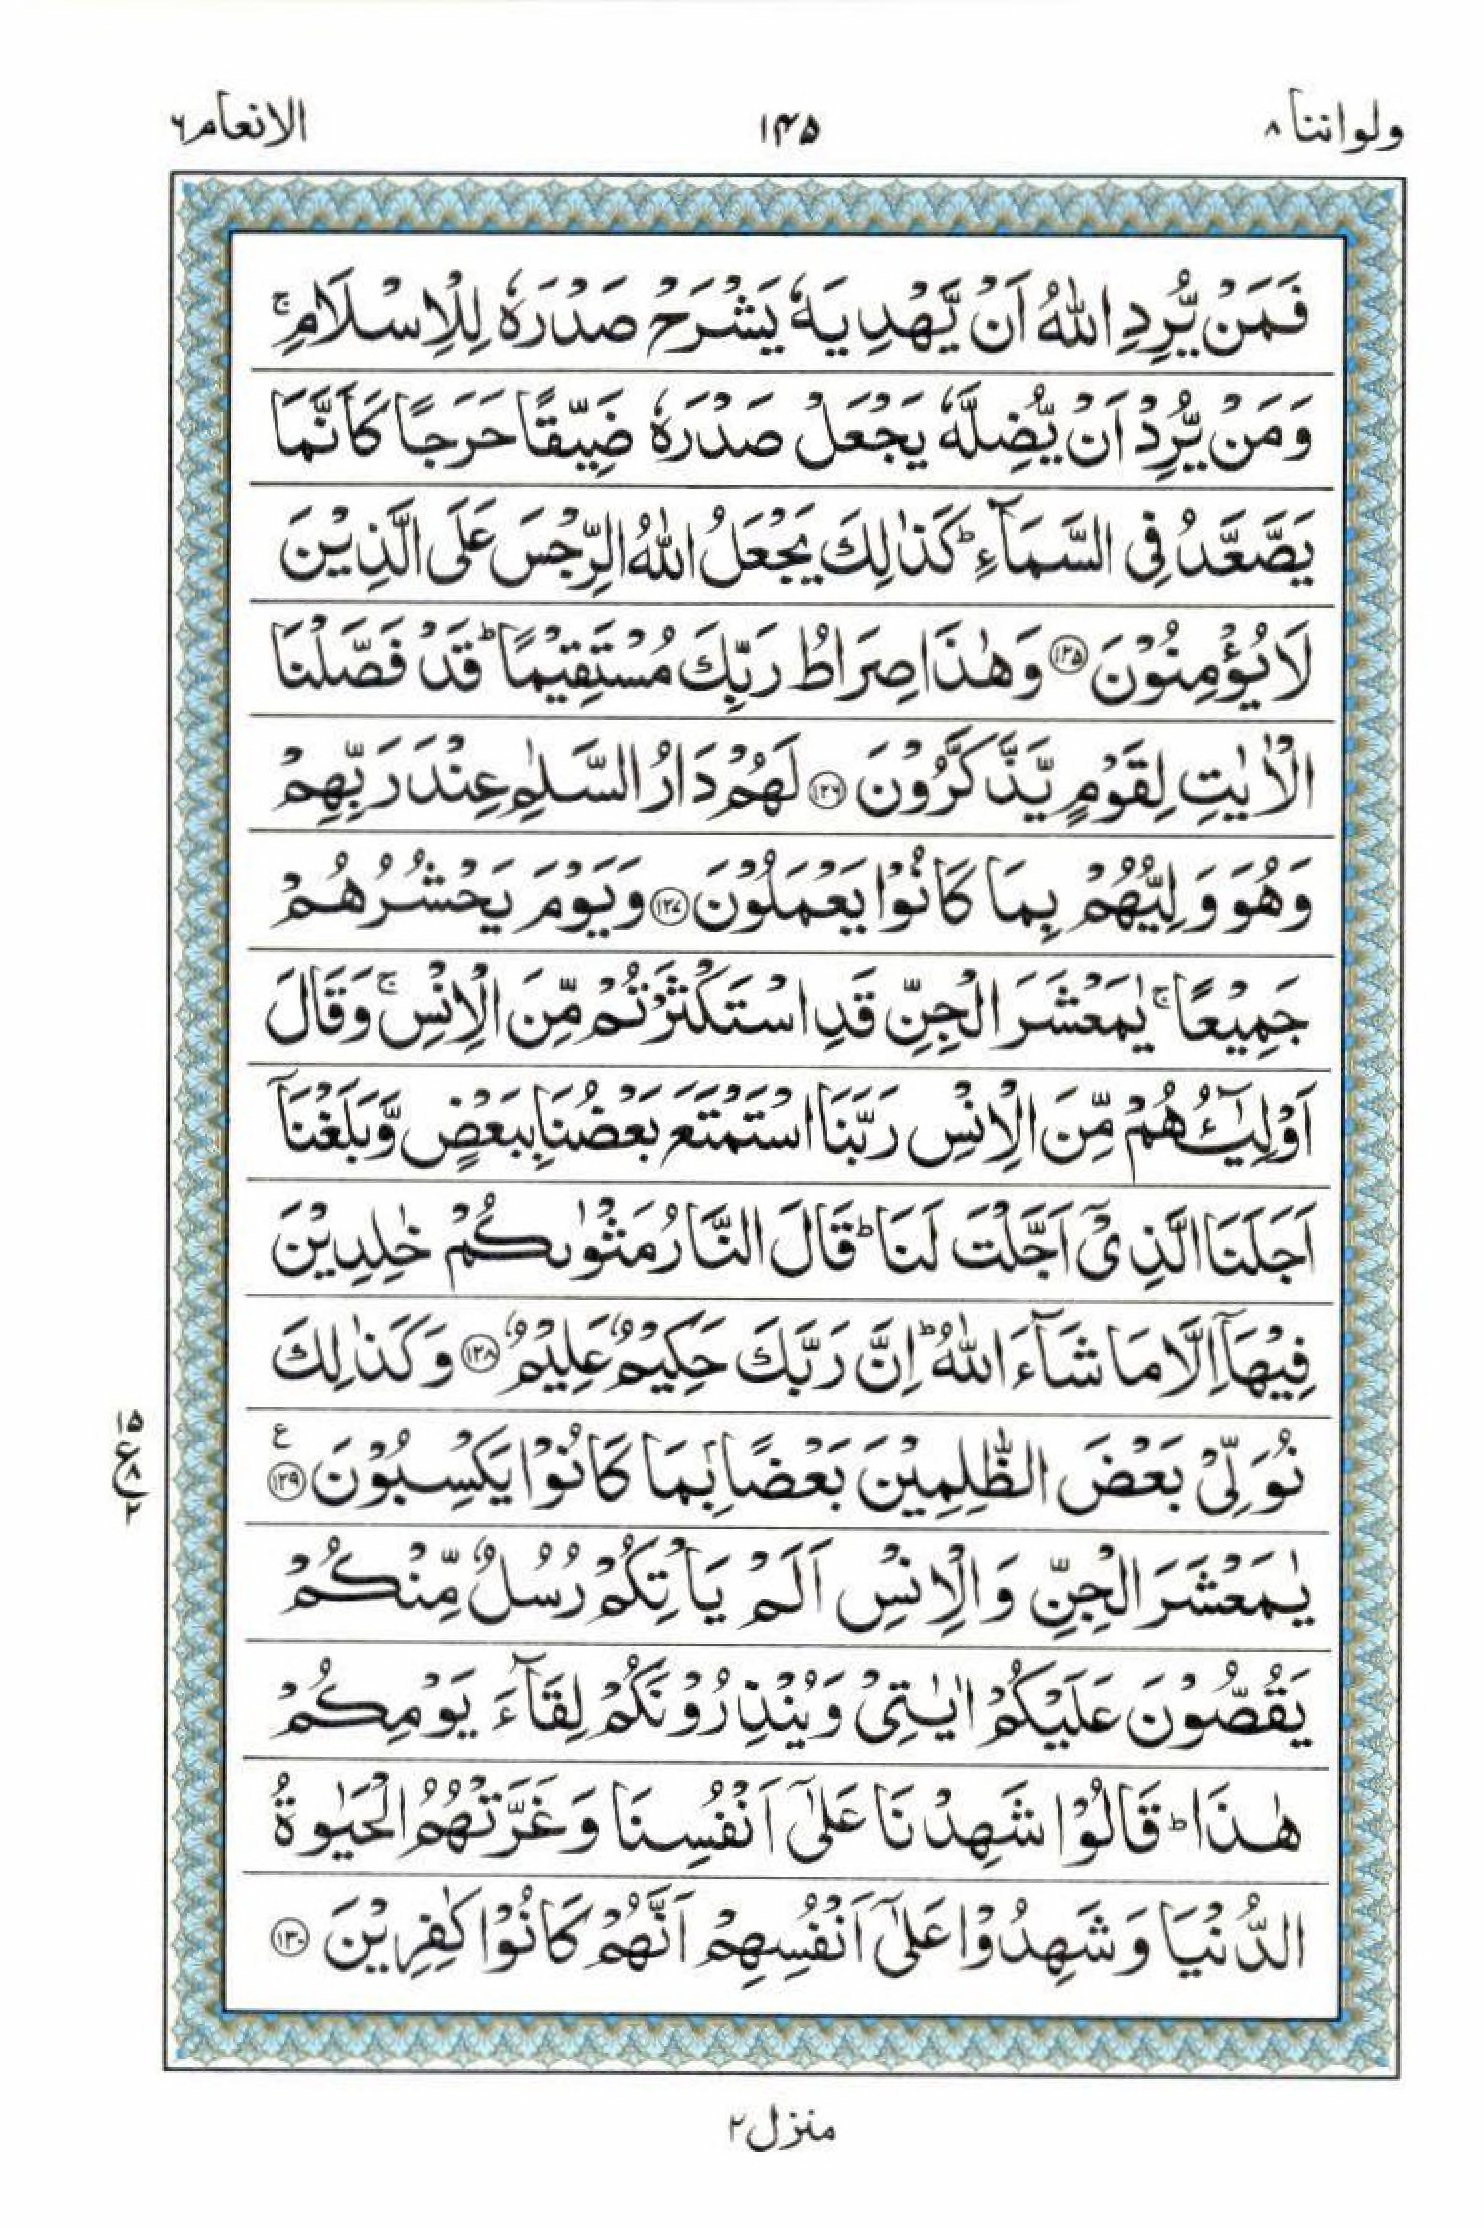 ولواننا ۸
۱۴۵
الانعام ۶
فَمَنْ یُّرِدِ اللّٰهُ اَنْ یَّهْدِیَهٗ یَشْرَحْ صَدْرَهٗ لِلْاِسْلَامِ ۚ
وَمَنْ یُّرِدْ اَنْ یُّضِلَّهٗ یَجْعَلْ صَدْرَهٗ ضَیِّقًا حَرَجًا كَاَنَّمَا
یَصَّعَّدُ فِی السَّمَآءِ ؕ كَذٰلِكَ یَجْعَلُ اللّٰهُ الرِّجْسَ عَلَی الَّذِیْنَ
لَا یُؤْمِنُوْنَ ۝۱۲۵ وَهٰذَا صِرَاطُ رَبِّكَ مُسْتَقِیْمًا ؕ قَدْ فَصَّلْنَا
الْاٰیٰتِ لِقَوْمٍ یَّذَّكَّرُوْنَ ۝۱۲۶ لَهُمْ دَارُ السَّلٰمِ عِنْدَ رَبِّهِمْ
وَهُوَ وَلِیُّهُمْ بِمَا كَانُوْا یَعْمَلُوْنَ ۝۱۲۷ وَیَوْمَ یَحْشُرُهُمْ
جَمِیْعًا ۚ یٰمَعْشَرَ الْجِنِّ قَدِ اسْتَكْثَرْتُمْ مِّنَ الْاِنْسِ ۚ وَقَالَ
اَوْلِیٰٓـُٔهُمْ مِّنَ الْاِنْسِ رَبَّنَا اسْتَمْتَعَ بَعْضُنَا بِبَعْضٍ وَّبَلَغْنَآ
اَجَلَنَا الَّذِیْۤ اَجَّلْتَ لَنَا ؕ قَالَ النَّارُ مَثْوٰىكُمْ خٰلِدِیْنَ
فِیْهَاۤ اِلَّا مَا شَآءَ اللّٰهُ ؕ اِنَّ رَبَّكَ حَكِیْمٌ عَلِیْمٌ ۝۱۲۸ وَكَذٰلِكَ
نُوَلِّیْ بَعْضَ الظّٰلِمِیْنَ بَعْضًۢا بِمَا كَانُوْا یَكْسِبُوْنَ ۝۱۲۹ ع
۱۵
ع ۸
۲
یٰمَعْشَرَ الْجِنِّ وَالْاِنْسِ اَلَمْ یَاْتِكُمْ رُسُلٌ مِّنْكُمْ
یَقُصُّوْنَ عَلَیْكُمْ اٰیٰتِیْ وَیُنْذِرُوْنَكُمْ لِقَآءَ یَوْمِكُمْ
هٰذَا ؕ قَالُوْا شَهِدْنَا عَلٰۤی اَنْفُسِنَا وَغَرَّتْهُمُ الْحَیٰوةُ
الدُّنْیَا وَشَهِدُوْا عَلٰۤی اَنْفُسِهِمْ اَنَّهُمْ كَانُوْا كٰفِرِیْنَ ۝۱۳۰
منزل ۲